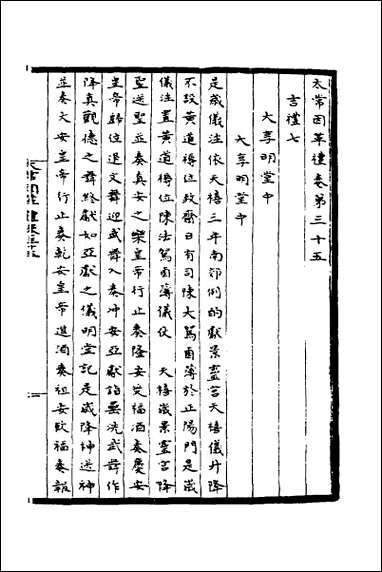 太常因革禮卷第三十五
吉禮七
大享明堂中
大享明堂中
是歲儀注依天禧三年南郊例的獻景靈宮天禧儀升降
不設黃道褥位致齋日有司陳大駕鹵簿於正陽門是歲
儀注置黃道褥位陳法駕鹵簿儀仗 天禧歲景靈宮降
聖送聖並奏真安之樂皇帝行止奏隆安奠福酒奏慶安
皇帝歸位退文舞迎武舞入奏冲安亞獻詣罍洗武舞作
降真觀德之舞終獻如亞獻之儀明堂記是歲降神送神
並奏大安皇帝行止奏乾安皇帝進酒奏祖安飲福奏報